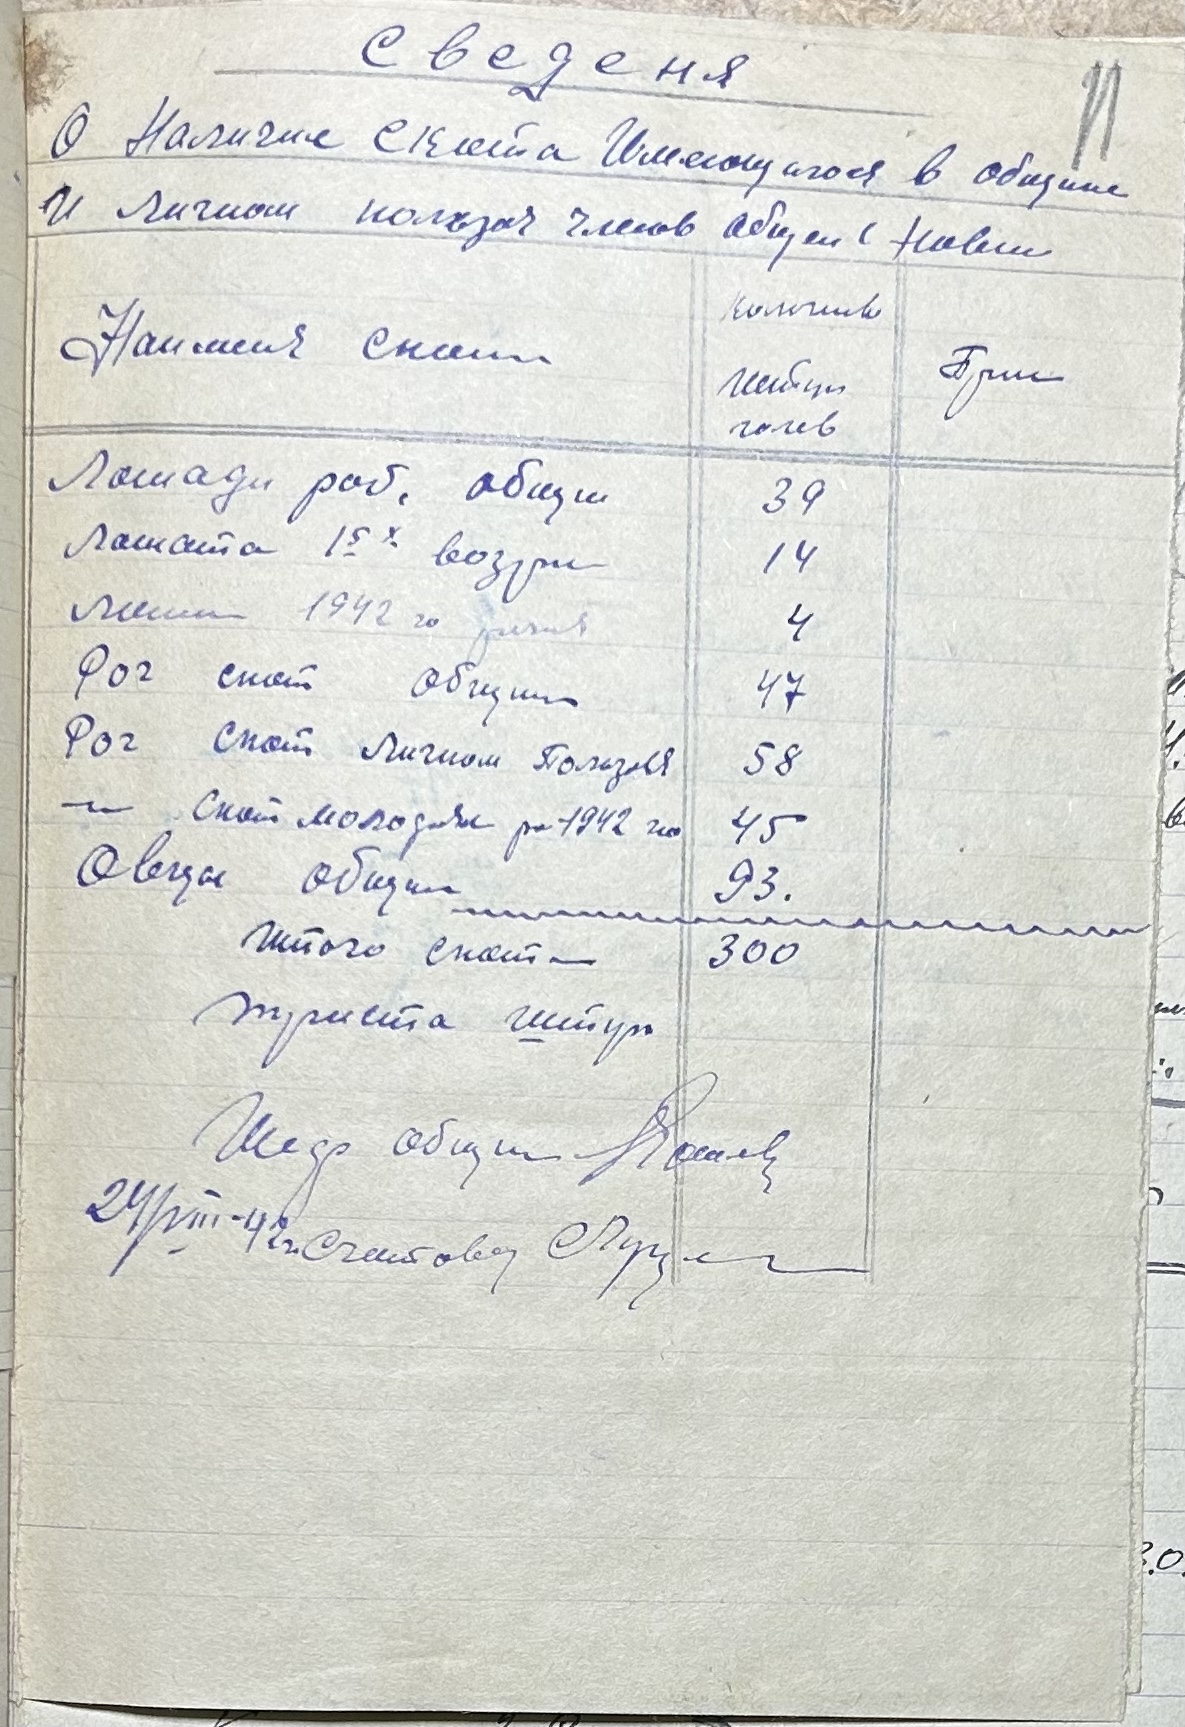 Сведеня
О Наличие Скота Имеющагося в общине
И личном ползов членов общен
Наименя скот
Количество
штук
голов
Прим
Лошади раб. общин 39
Лошата 1 5 х возр 14
1942 го 4
Рог скот общин 47
Рог скот личном Ползовя 58
-"- скот молодняк ро 1942 го 45
Овецы общин 93.
Итого скот 300
триста штук
общин
24/VIII-42 г. Счетовод